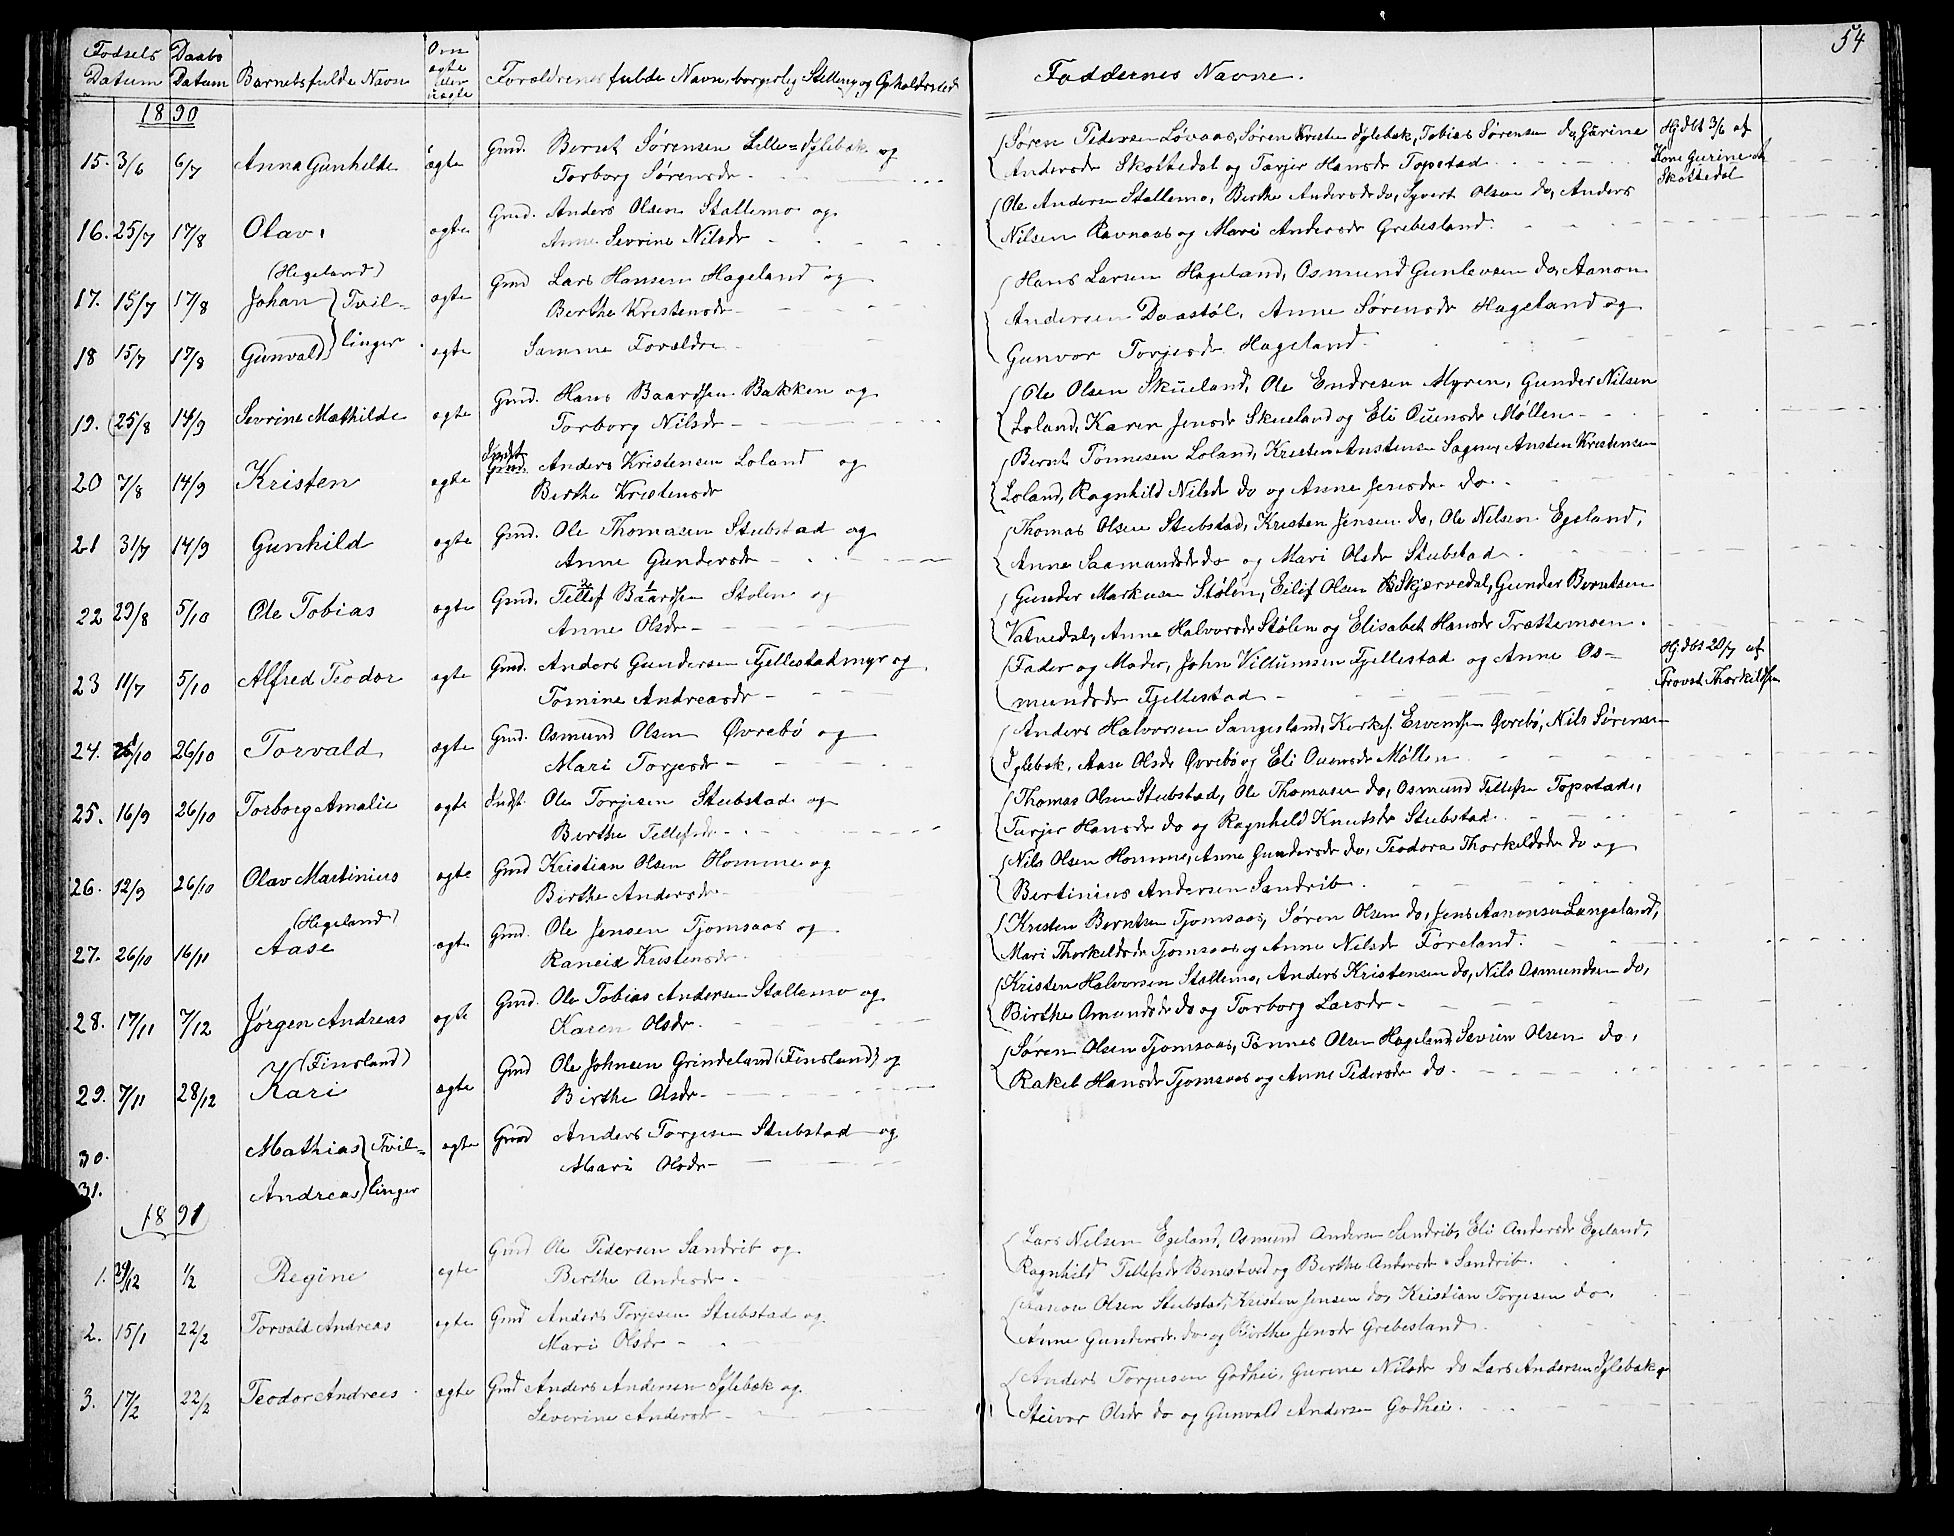 54
Fødsels Datum
Daabs Datum
Barnets fulde Navn
Om ægte eller uægte
Forældrenes fulde Navn, borgerlig Stilling og Opholdssted
Faddernes Navne.
1890
15. 3/6 6/7 Anna Gunhilde ægte Gmd. Bernt Sørensen Lille=Iglebæk og
Torborg Sørensdr
Søren Pedersen Løvaas, Søren Kristen Iglebæk, Tobias Sørensen do, Gurine
Andersdr Skottedal og Tarjer Hansdr Topstad
Hjdbt 3/6 af
Kone Gurine
Skottedal
16. 25/7 17/8 Olav ægte Gmd. Anders Olsen Stallemo og
Anne Sevrine Nilsdr
Ole Andersen Stallemo, Birthe Andersdr do, Syvert Olsen do, Anders
Nilsen Ravnaas og Mari Andersdr Grebesland.
(Hegeland)
17. 15/7 17/8 Johan Tvil= ægte Gmd Lars Hansen Hageland og
Berthe Kristensdr
Hans Larsen Hageland, Osmund Gunlevsen do, Aanon
Andersen Daastøl, Anne Sørensdr Hageland og
18 15/7 17/8 Gunvald linger ægte Samme Forældre
Gunvor Torjesdr Hageland
19. 25/8 14/9 Sevrine Mathilde ægte Gmd. Hans Baardsen Bakken og
Torborg Nilsdr
Ole Olsen Skueland, Ole Endresen Myren, Gunder Nilsen
Loland, Karen Jensdr Skueland og Eli Ouensdr Møllen
20 7/8 14/9 Kristen ægte Indst. Gmd. Anders Kristensen Loland og
Birthe Kristensdr
Bernt Tønnesen Loland, Kristen Austensen Sagen, Austen Kristensen
Loland, Ragnhild Nilsdr do og Anne Jensdr do.
21 31/7 14/9 Gunhild ægte Gmd. Ole Thomasen Stubstad og
Anne Gundersdr
Thomas Olsen Stubstad, Kristen Jensen do, Ole Nilsen Egeland,
Anne Saamundsdr do og Mari Olsdr Stubstad.
22 29/8 5/10 Ole Tobias ægte Gmd. Tellef Baardsen Stølen og
Anne Olsdr
Gunder Markusen Stølen, Eilef Olsen Skjærvedal, Gunder Berntsen
Vatnedal, Anne Halvorsdr Stølen og Elisabet Hansdr Trættemoen.
23 11/7 5/10 Alfred Teodor ægte Gmd. Anders Gundersen Fjellestadmyr og
Tomine Andreasdr
Fader og Moder, John Villumsen Fjellestad og Anne Os-
mundsdr Fjellestad
Hjdbt 20/7 af
Provst Thorkildsen
24. /10 26/10 Torvald ægte Gmd. Osmund Olsen Øvrebø og
Mari Torjesdr
Anders Halvorsen Sangesland, Kirkes. Ervensen Øvrebø, Nils Sørensen
Iglebæk, Aase Olsdr Øvrebø og Eli Ouensdr Møllen
25. 16/9 26/10 Torborg Amalie ægte Indst. Ole Torjesen Stubstad og
Berthe Tellefsdr
Thomas Olsen Stubstad, Ole Thomasen do, Osmund Tellefsen Topstad,
Tarjer Hansdr do og Ragnhild Knutsdr Stubstad.
26. 12/9 26/10 Olav Martinius ægte Gmd Kristian Olsen Homme og
Birthe Andersdr
Nils Olsen Homme, Anne Gundersdr do, Teodora Thorkildsdr do og
Bertinius Andersen Sandrib.
(Hegeland)
27. 26/10 16/11 Aase ægte Gmd. Ole Jensen Tjomsaas og
Raneid Kristensdr
Kristen Berntsen Tjomsaas, Søren Olsen do, Jens Aanonsen Langeland,
Mari Thorkildsdr Tjomsaas og Anne Nilsdr Føreland.
28. 17/11 7/12 Jørgen Andreas ægte Gmd. Ole Tobias Andersen Stallemo og
Karen Olsdr.
Kristen Halvorsen Stallemo, Anders Kristensen do, Nils Osmundsen do,
Birthe Omundsdr do og Torborg Larsdr
(Finsland)
29. 7/11 28/12 Kari ægte Gmd Ole Johnsen Grindeland (Finsland) og
Birthe Olsdr
Søren Olsen Tjomsaas, Tønnes Olsen Hageland, Sevrin Olsen do,
Rakel Hansdr Tjomsaas og Anne Pedersdr do.
30. Mathias Tvil= ægte Gmd Anders Torjesen Stubstad og
Mari Olsdr
31. Andreas linger
1891
1. 29/12 1/2 Regine ægte Gmd Ole Pedersen Sandrib og
Berthe Andersdr
Lars Nilsen Egeland, Osmund Andersen Sandrib, Eli Andersdr Egeland,
Ragnhild Tellefsdr Benestved og Berthe Andersdr Sandrib.
2. 15/1 22/2 Torvald Andreas ægte Gmd Anders Torjesen Stubstad og
Mari Olsdr
Aanon Olsen Stubstad, Kristen Jensen do, Kristian Torjesen do,
Anne Gundersdr do og Birthe Jensdr Grebesland
3. 17/2 22/2 Teodor Andreas ægte Gmd Anders Andersen Iglebæk og
Severine Andersdr
Anders Torjesen Godhei, Gurine Nilsdr do Lars Andersen Iglebæk
Steivor Olsdr do og Gunvald Andersen Godhei.